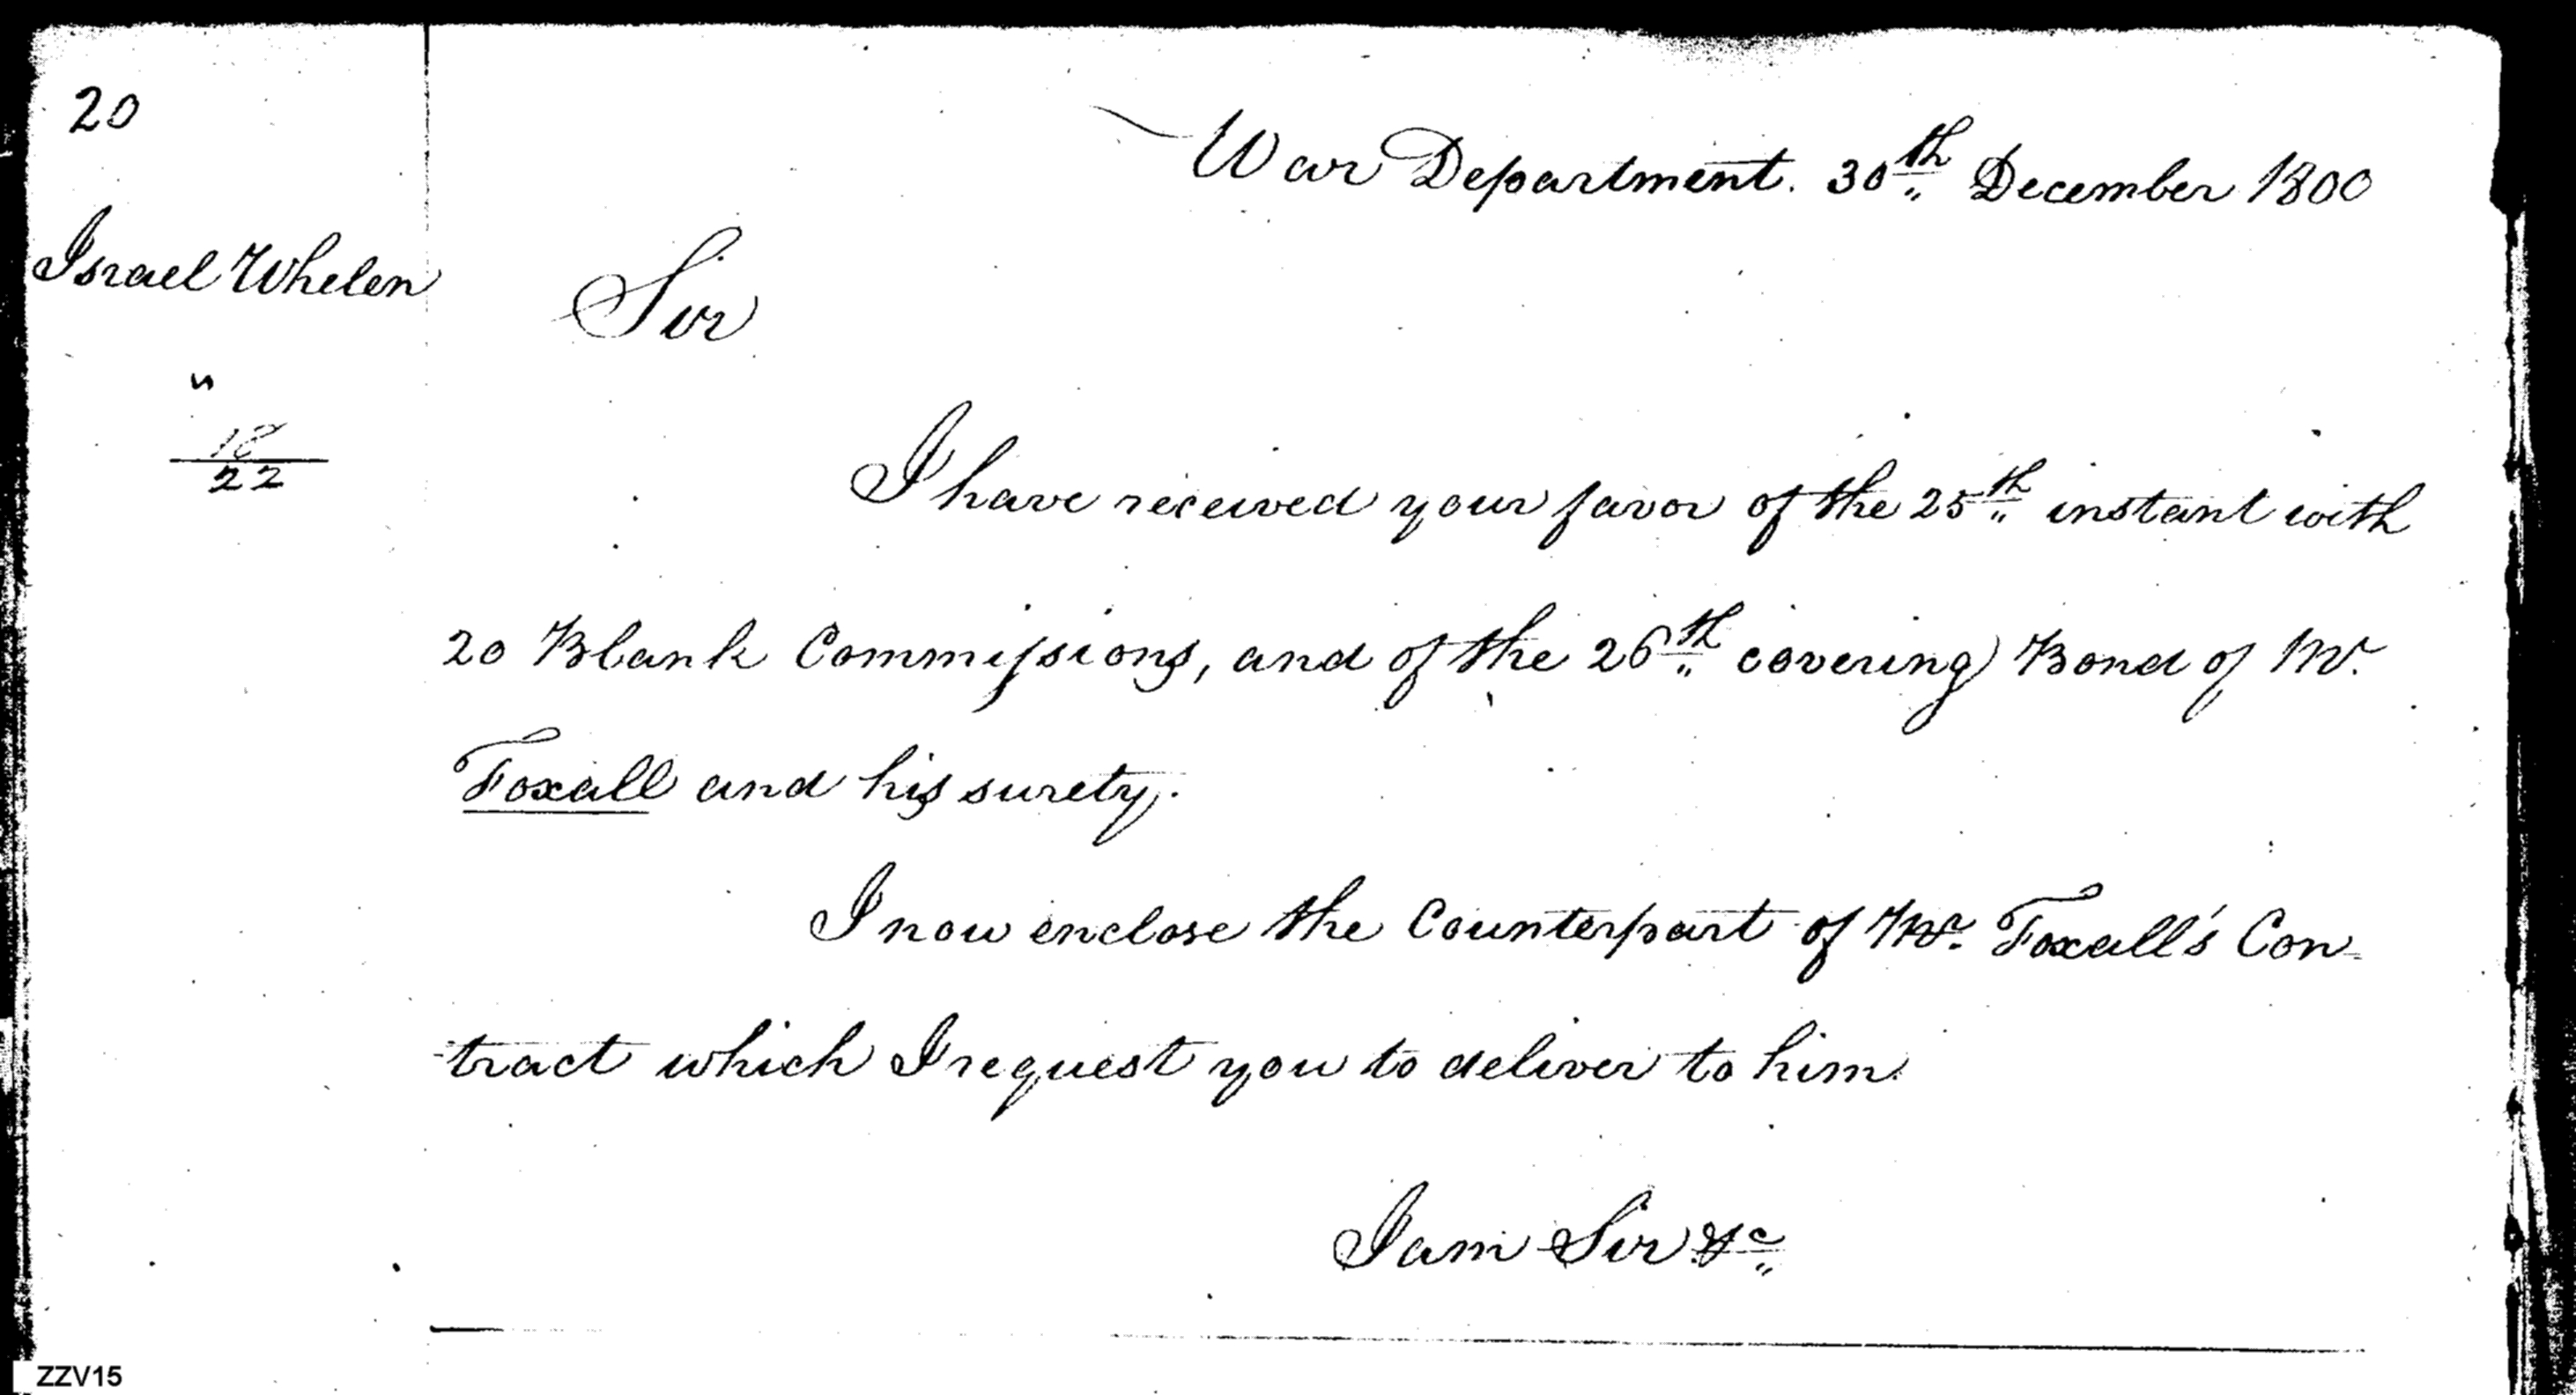 20
War Department. 30th December 1800
Israel Whelen
Sir
"
18
22
I have received your favor of the 25th instant with
20 Blank Commissions, and of the 26th covering Bond of Mr.
Foxall and his surety.
I now enclose the Counterpart of Mr. Foxall's Con-
tract which I request you to deliver to him.
I am Sir &c
ZZV15